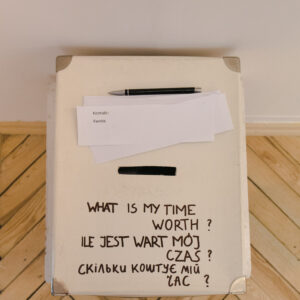 WHAT IS MY TIME
WORTH ?
ILE JEST WART MÓJ
CZAS ?
СКІЛЬКИ КОШТУЄ МІЙ
ЧАС ?